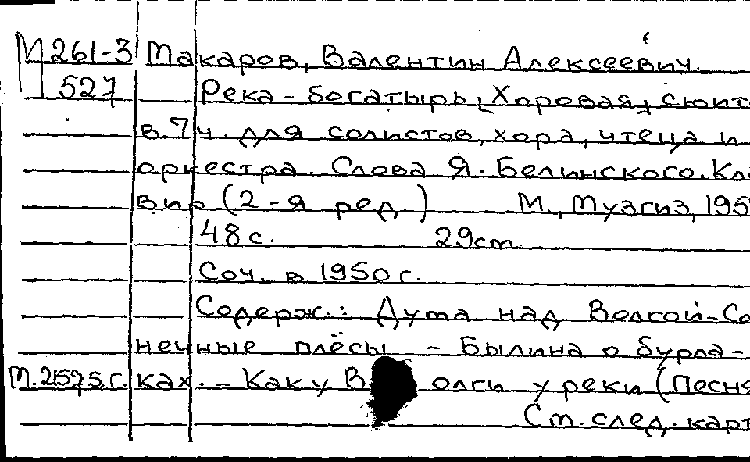 М261-3 Макаров, Валентин Алексеевич.
527 Река-богатырь. Хоровая сюит
в 7 ч. для солистов, хора, чтеца и
оркестра. Слова Я. Белинского. Кла
вир (2-я ред.) М., Музгиз, 195
48 с. 29 cm.
Соч. в 1950 г.
Содерж.: Дума над Волгой - Со
нечные плёсы - Былина о бурла-
М.2575 г. ках. - Как у Волги у реки (Песня
См. след. карт